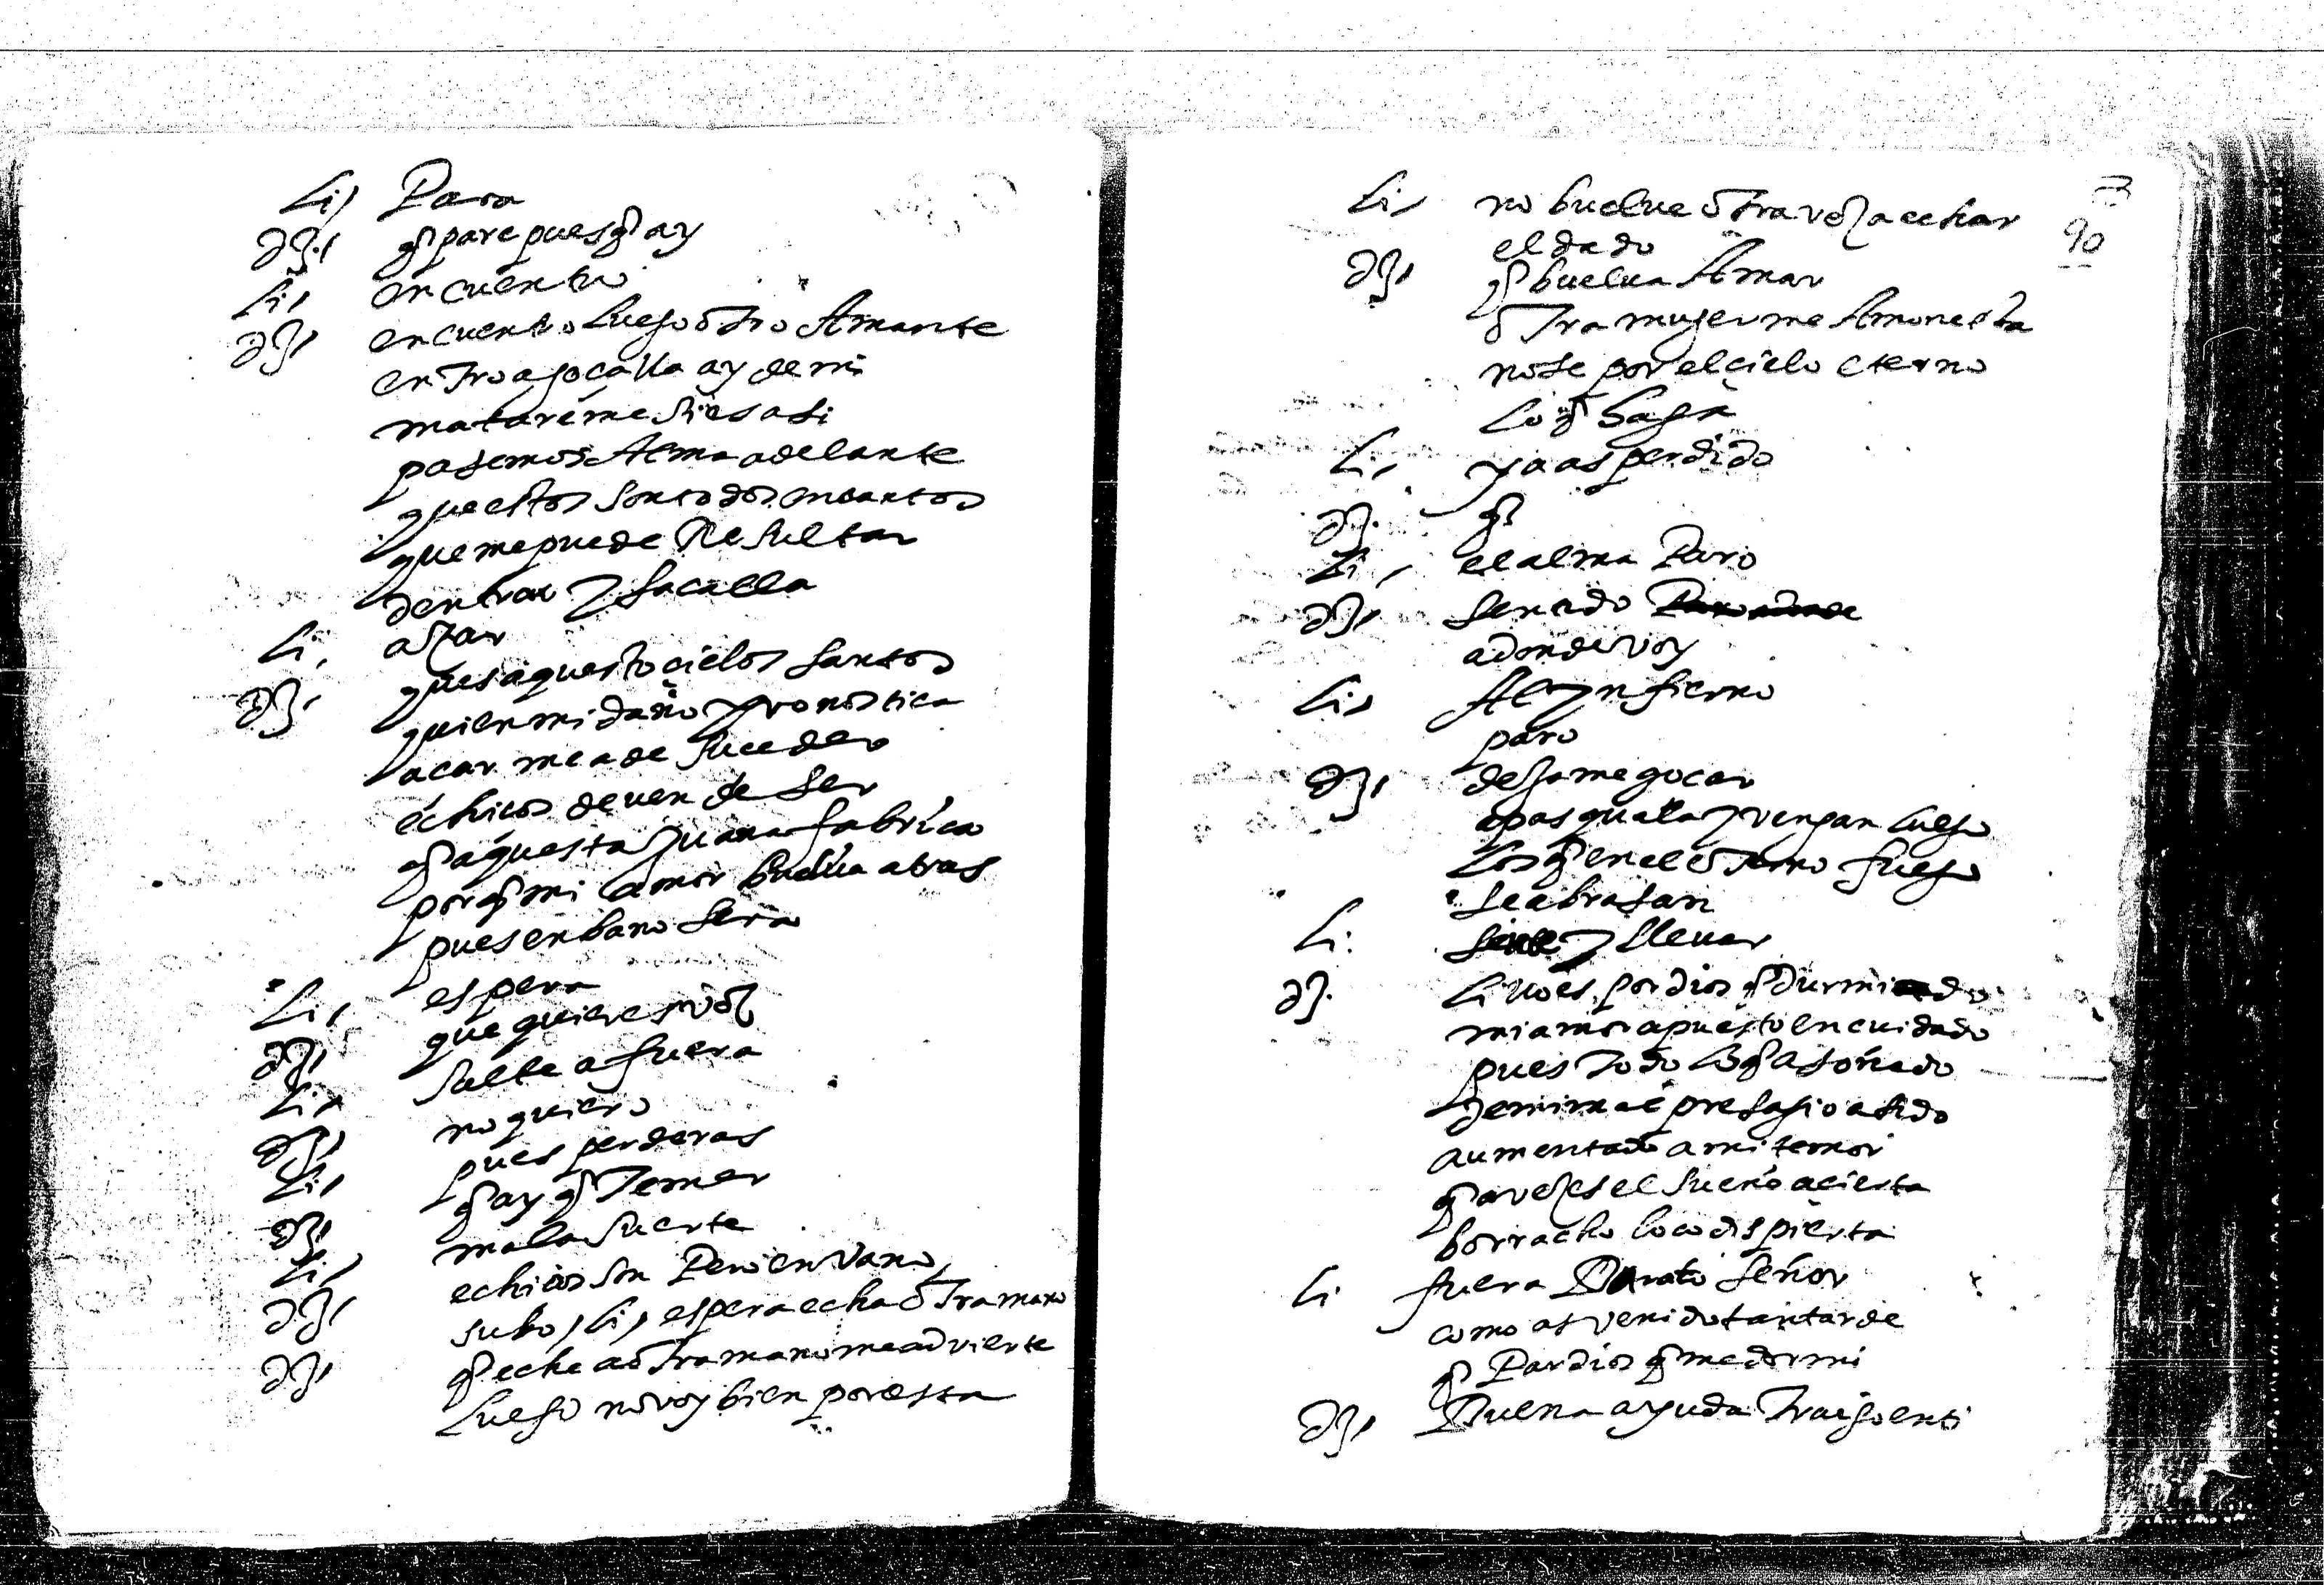 Li, Para
dj, q̃ pare pues q̃ ay
Li, encuentro
dj, encuentro luego otro Amante
entro a gocalla ay de mi
matareme si es asi
pasemos Alma adelante
que estos son todos encantos
que me puede Resultar
dentrar y sacalla
Li, açar
dj, ques aquesto cielos santos
quien mi daño pronostica
acar me a de suceder
echicos deuen de ser
q̃ aquesta Juana fabrica
porq̃ mi amor buelua atras
pues en bano sera
Li, espera
dj, que quieres voz
Li, salte afuera
dj, no quiero
Li, pues perderas
dj, q̃ ay q̃ Temer
Li, mala suerte
dj, echicos son Pero en Vano
subo, Li, espera echa otra mano
dj, q̃ eche a otra mano me advierte
luego no voy bien por esta
90
Li, no buelue otra vez a echar
el dado
dj, q̃ buelua Amar
otra muger me Amonesta
no se por el cielo eterno
lo q̃ haga
Li, ya as perdido
dj. q̃
Li, el alma Paro
dj, senado
adonde voy
Li, Al ynfierno
paro
dj, dejame gocar
a pasquala y vengan luego
los q̃ en el eterno fuego
se abrasan
Li. y lleuar
dj. Li no es por dios q̃ durmiendo
mi amor a puesto en cuidado
pues Todo lo q̃ a soñado
de mi mal presagio a sido
aumentado a mi temor
q̃ a vezes el sueño acierta
borracho loco dispierta
Li fuera Barato señor
como as venido tan tarde
q̃ Pardios q̃ me dormi
dj, Buena ayuda Traigo en ti